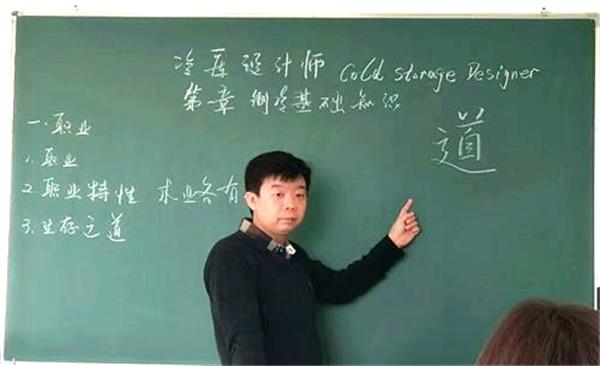 冷库设计师 Cold Storage Designer
第一章 制冷基础知识
道
一. 职业
1. 职业
2. 职业特性 术业各有
3. 生存之道